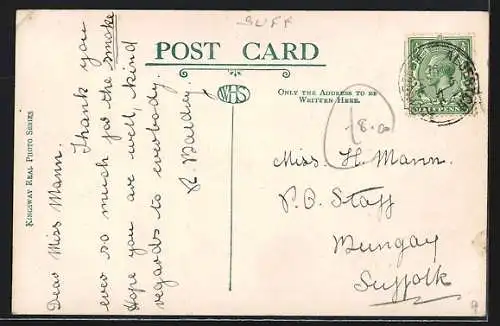 SUFF
POST CARD
KINGSWAY REAL PHOTO SERIES
WHS
ONLY THE ADDRESS TO BE
WRITTEN HERE.
Dear Miss Mann.
Thank you
ever so much for the smoke
Hope you are well, kind
regards to everybody.
R
18.00
Miss. H. Mann.
P.O. Staff
Bungay
Suffolk